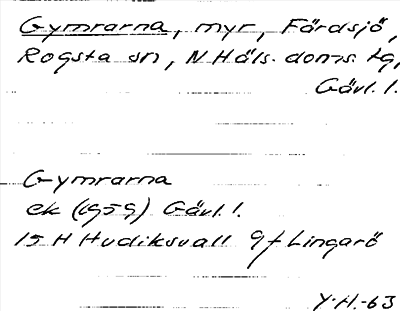 Gymrarna, myr, Färdsjö,
Rogsta sn, N Häls. doms. tg,
Gävl. l.
Gymrarna
ek (1959) Gävl. l.
15 H Hudiksvall 9 f Lingarö
Y.H.-63